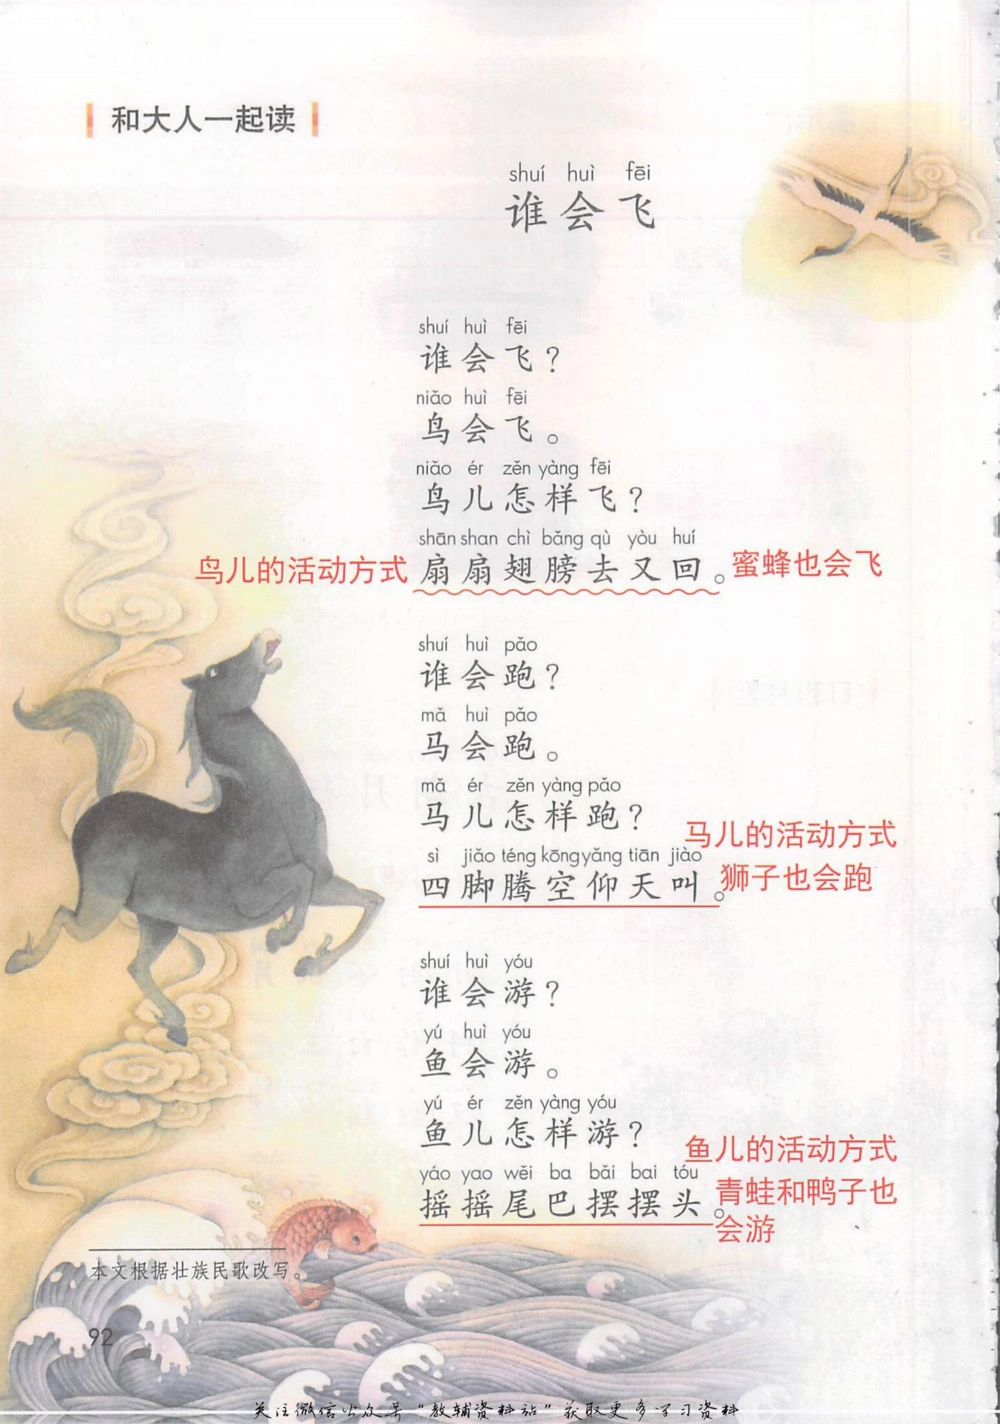 和大人一起读
shuí huì fēi
谁会飞
shuí huì fēi
谁会飞？
niǎo huì fēi
鸟会飞。
niǎo ér zěn yàng fēi
鸟儿怎样飞？
shān shan chì bǎng qù yòu huí
鸟儿的活动方式 扇扇翅膀去又回。 蜜蜂也会飞
shuí huì pǎo
谁会跑？
mǎ huì pǎo
马会跑。
mǎ ér zěn yàng pǎo
马儿怎样跑？
马儿的活动方式
sì jiǎo téng kōng yǎng tiān jiào
四脚腾空仰天叫。 狮子也会跑
shuí huì yóu
谁会游？
yú huì yóu
鱼会游。
yú ér zěn yàng yóu
鱼儿怎样游？
鱼儿的活动方式
yáo yao wěi ba bǎi bai tóu
摇摇尾巴摆摆头。 青蛙和鸭子也
会游
本文根据壮族民歌改写。
92
关注微信公众号“教辅资料站”获取更多学习资料